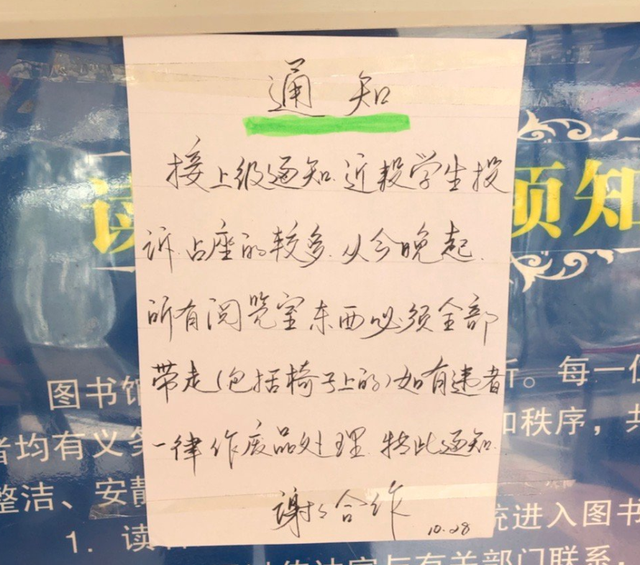 通知
接上级通知.近段学生投
诉.占座的较多.从今晚起.
所有阅览室东西必须全部
带走(包括椅子上的)如有违者
一律作废品处理.特此通知.
谢谢合作
10.28
读
须知
图书馆
新。每一位
者均有义务
和秩序,共
整洁、安静
统进入图书
1. 读
与有关部门联系,